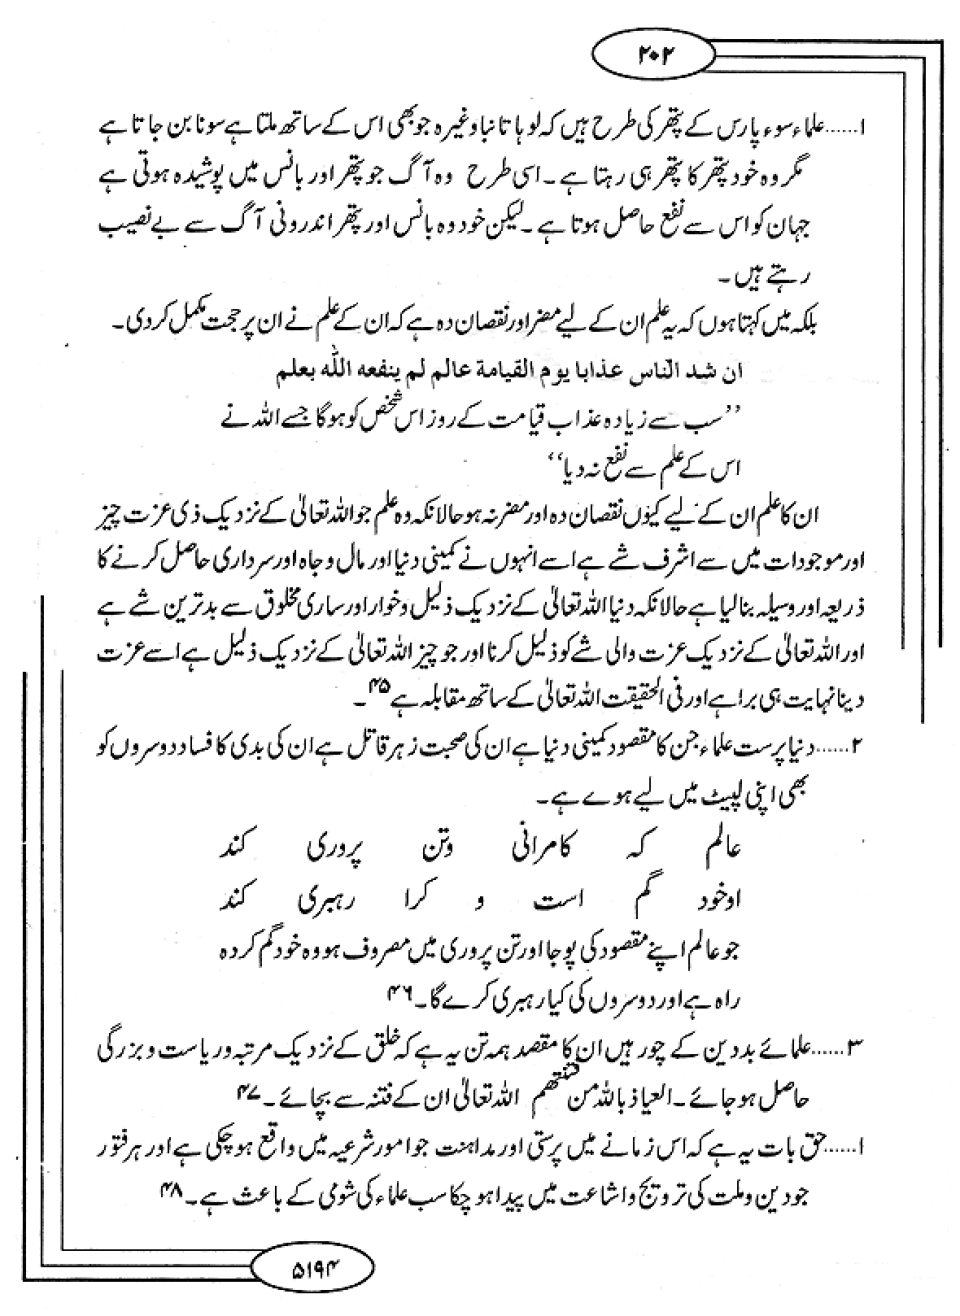 ۲۰۲
۱......علماء سوء پارس کے پتھر کی طرح ہیں کہ لوہا تانبا وغیرہ جو بھی اس کے ساتھ ملتا ہے سونا بن جاتا ہے
مگر وہ خود پتھر کا پتھر ہی رہتا ہے۔ اسی طرح وہ آگ جو پتھر اور بانس میں پوشیدہ ہوتی ہے
جہان کو اس سے نفع حاصل ہوتا ہے۔ لیکن خود وہ بانس اور پتھر اندرونی آگ سے بے نصیب
رہتے ہیں۔
بلکہ میں کہتا ہوں کہ یہ علم ان کے لیے مضر اور نقصان دہ ہے کہ ان کے علم نے ان پر حجت مکمل کر دی۔
ان شد الناس عذابا يوم القيامة عالم لم ينفعه الله بعلم
”سب سے زیادہ عذاب قیامت کے روز اس شخص کو ہوگا جسے اللہ نے
اس کے علم سے نفع نہ دیا“
ان کا علم ان کے لیے کیوں نقصان دہ اور مضر نہ ہو حالانکہ وہ علم جو اللہ تعالیٰ کے نزدیک ذی عزت چیز
اور موجودات میں سے اشرف شے ہے اسے انہوں نے کمینی دنیا اور مال و جاہ اور سرداری حاصل کرنے کا
ذریعہ اور وسیلہ بنا لیا ہے حالانکہ دنیا اللہ تعالیٰ کے نزدیک ذلیل و خوار اور ساری مخلوق سے بدترین شے ہے
اور اللہ تعالیٰ کے نزدیک عزت والی شے کو ذلیل کرنا اور جو چیز اللہ تعالیٰ کے نزدیک ذلیل ہے اسے عزت
دینا نہایت ہی برا ہے اور فی الحقیقت اللہ تعالیٰ کے ساتھ مقابلہ ہے ۴۵۔
۲......دنیا پرست علماء جن کا مقصود کمینی دنیا ہے ان کی صحبت زہر قاتل ہے ان کی بدی کا فساد دوسروں کو
بھی اپنی لپیٹ میں لیے ہوے ہے۔
عالم کہ کامرانی وتن پروری کند
اوخود گم است و کرا رہبری کند
جو عالم اپنے مقصود کی پوجا اور تن پروری میں مصروف ہو وہ خود گم کردہ
راہ ہے اور دوسروں کی کیا رہبری کرے گا۔ ۴۶
۳......علمائے بد دین کے چور ہیں ان کا مقصد ہمہ تن یہ ہے کہ خلق کے نزدیک مرتبہ و ریاست و بزرگی
حاصل ہو جائے۔ العیاذ باللہ من فتنتھم اللہ تعالیٰ ان کے فتنہ سے بچائے۔ ۴۷
۱......حق بات یہ ہے کہ اس زمانے میں پرستی اور مداہنت جو امور شرعیہ میں واقع ہو چکی ہے اور ہر فتور
جو دین و ملت کی ترویج و اشاعت میں پیدا ہو چکا سب علماء کی شومی کے باعث ہے۔ ۴۸
۵۱۹۴